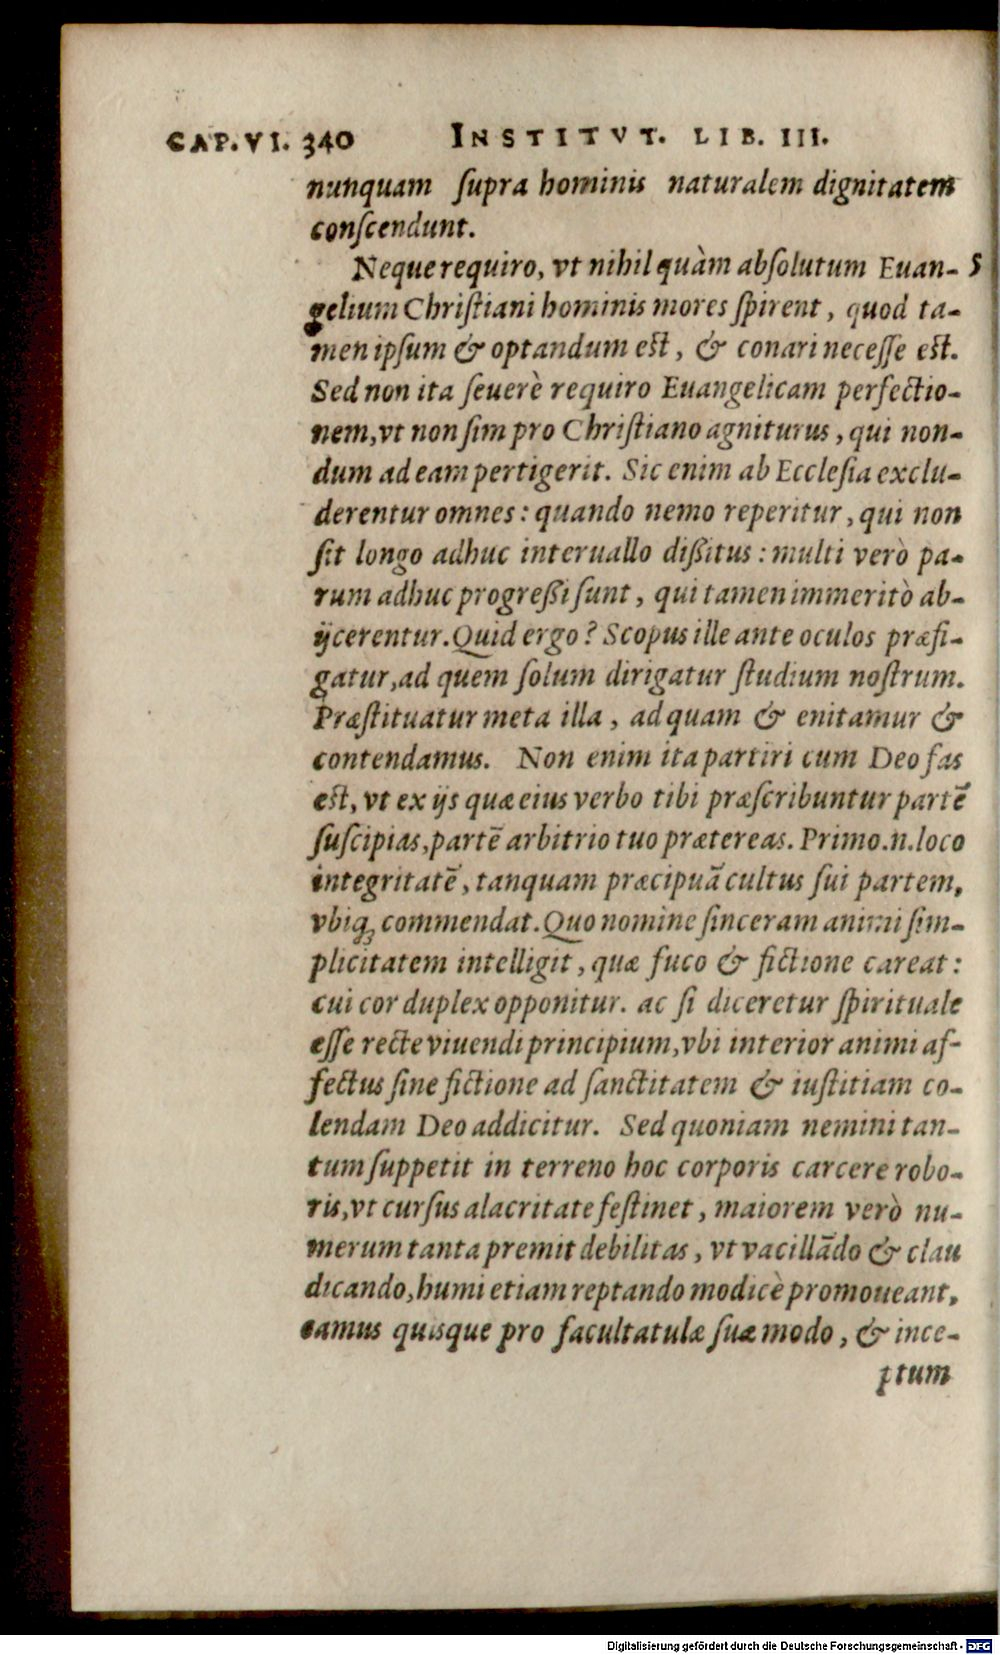 CAP. VI. 340 INSTITVT. LIB. III.
nunquam ſupra hominis naturalem dignitatem
conſcendunt.
Neque requiro, vt nihil quàm abſolutum Euan- 5
gelium Chriſtiani hominis mores ſpirent, quod ta-
men ipſum & optandum eſt, & conari neceſſe eſt.
Sed non ita ſeuerè requiro Euangelicam perfectio-
nem, vt non ſim pro Chriſtiano agniturus, qui non-
dum ad eam pertigerit. Sic enim ab Eccleſia exclu-
derentur omnes: quando nemo reperitur, qui non
ſit longo adhuc interuallo dißitus: multi verò pa-
rum adhuc progreßi ſunt, qui tamen immeritò ab-
ijcerentur. Quid ergo? Scopus ille ante oculos præfi-
gatur, ad quem ſolum dirigatur ſtudium noſtrum.
Præſtituatur meta illa, ad quam & enitamur &
contendamus. Non enim ita partiri cum Deo fas
eſt, vt ex ijs quæ eius verbo tibi præſcribuntur partē
ſuſcipias, partē arbitrio tuo prætereas. Primo.n.loco
integritatē, tanquam præcipuā cultus ſui partem,
vbiq; commendat. Quo nomine ſinceram animi ſim-
plicitatem intelligit, quæ fuco & fictione careat:
cui cor duplex opponitur. ac ſi diceretur ſpirituale
eſſe recte viuendi principium, vbi interior animi af-
fectus ſine fictione ad ſanctitatem & iuſtitiam co-
lendam Deo addicitur. Sed quoniam nemini tan-
tum ſuppetit in terreno hoc corporis carcere robo-
ris, vt curſus alacritate feſtinet, maiorem verò nu-
merum tanta premit debilitas, vt vacillādo & clau
dicando, humi etiam reptando modicè promoueant,
eamus quisque pro facultatulæ ſuæ modo, & ince-
ptum
Digitalisierung gefördert durch die Deutsche Forschungsgemeinschaft - DFG